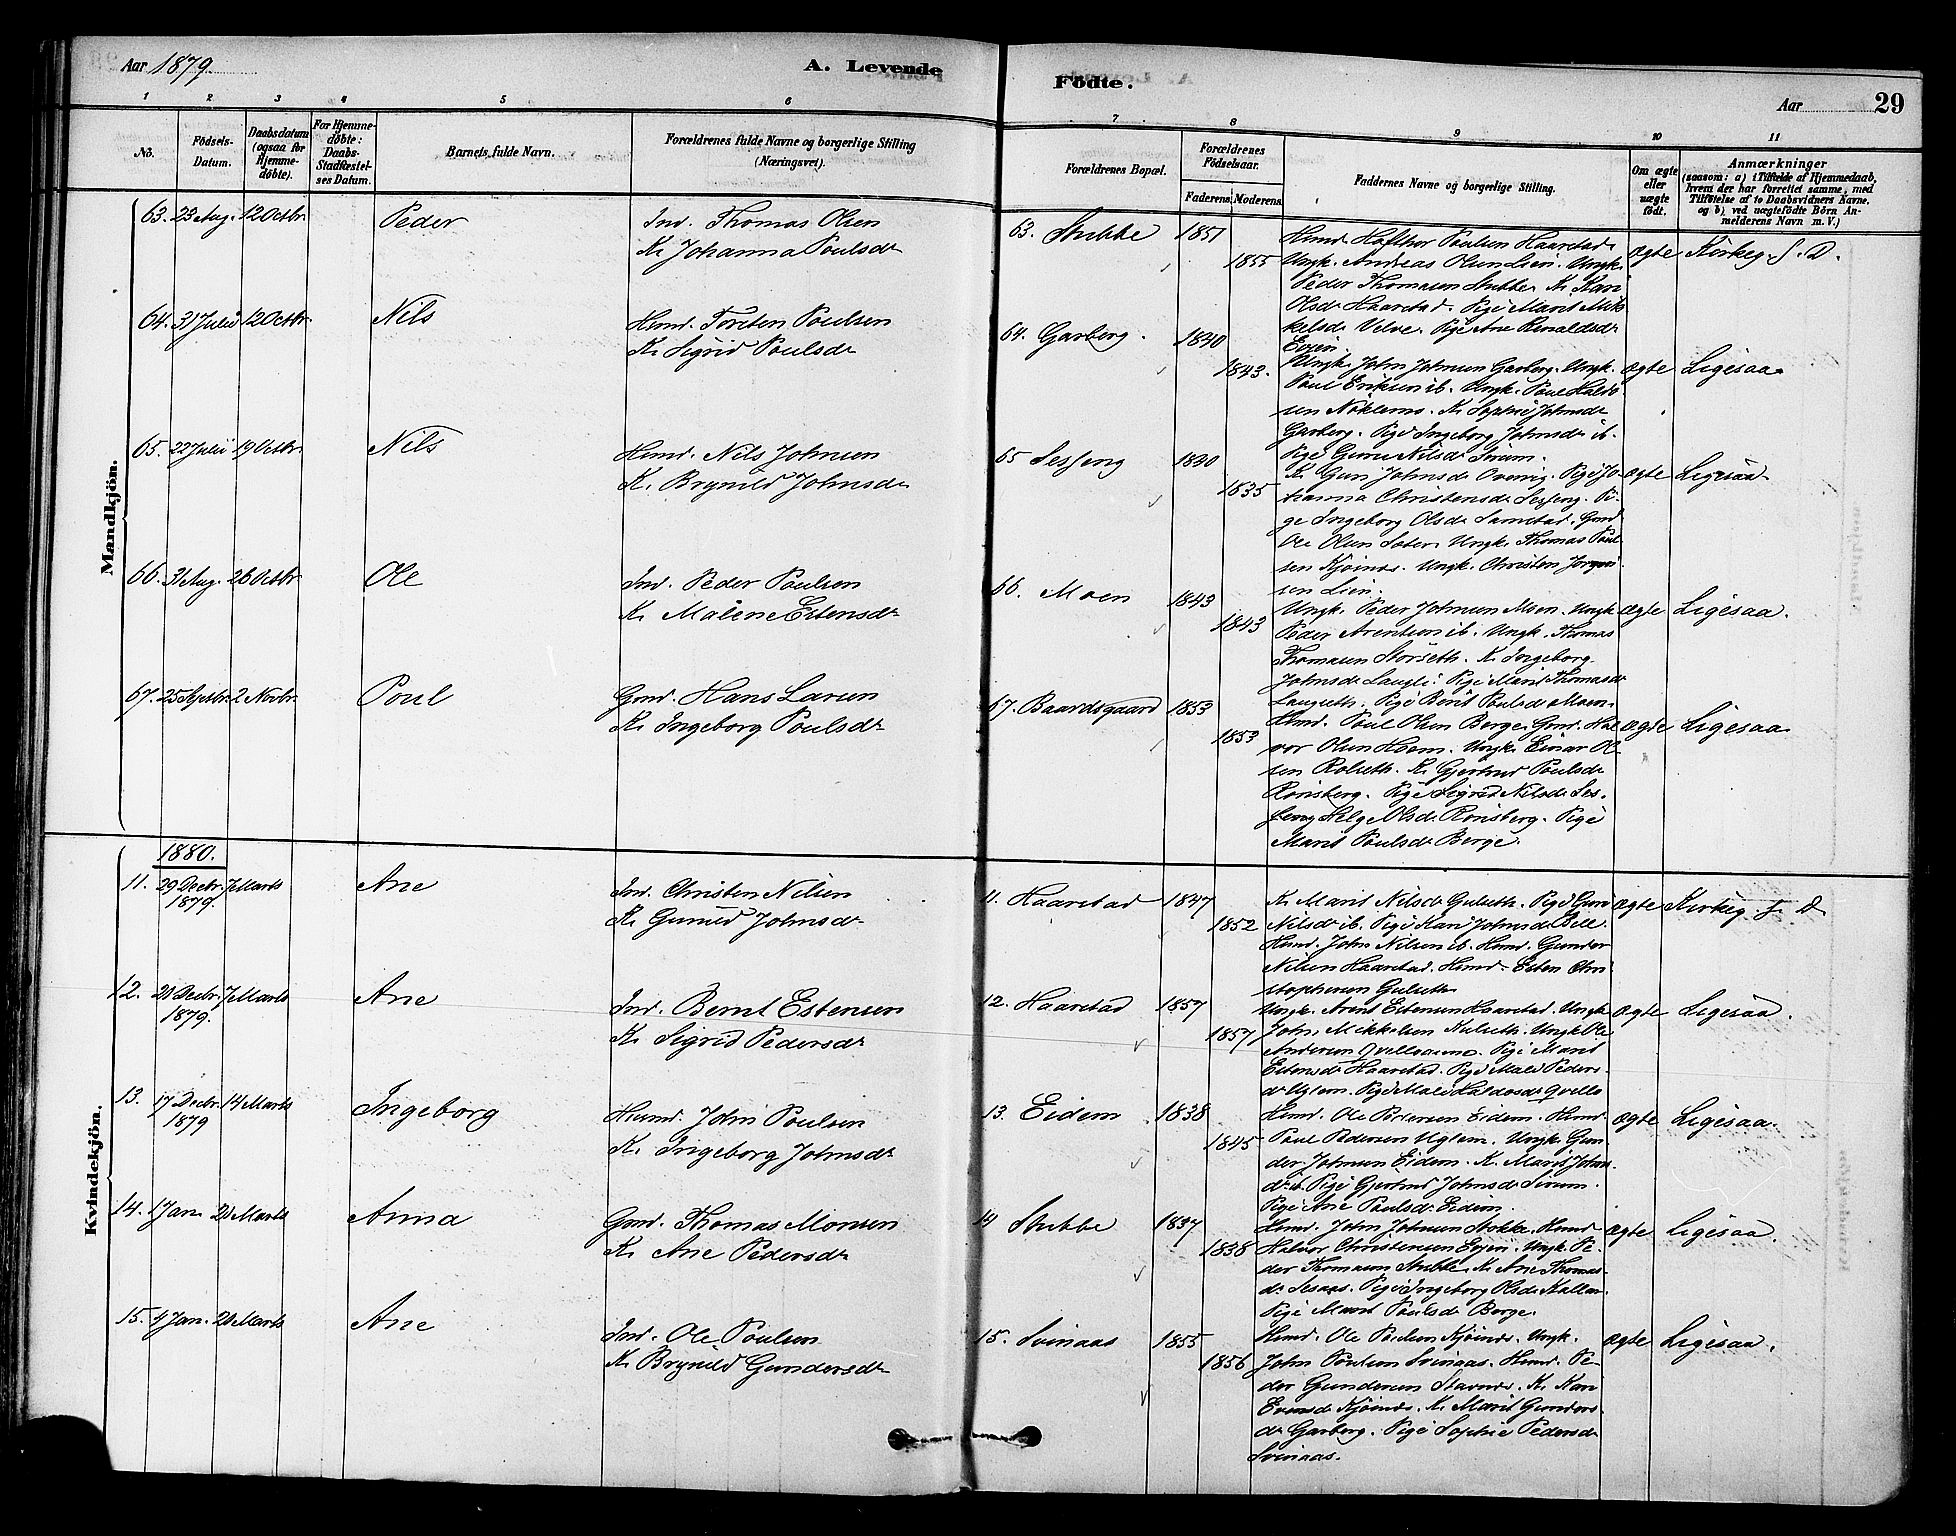 Aar 1879.
A. Levende
Födte.
Aar
29
1 2 3 4 5 6 7 8 9 10 11
No.
Födsels-Datum.
Daabsdatum (ogsaa for Hjemmedöbte).
For Hjemmedöbte: Daabs-Stadfæstelses Datum.
Barnets fulde Navn.
Forældrenes fulde Navne og borgerlige Stilling
(Næringsvei).
Forældrenes Bopæl.
Forældrenes Födselsaar.
Faderens. Moderens.
Faddernes Navne og borgerlige Stilling.
Om ægte eller uægte födt.
Anmærkninger
(saasom: a) i Tilfælde af Hjemmedaab,
hvem der har forrettet samme, med
Tilföielse af to Daabsvidners Navne.
og b) ved uægtefödte Börn An-
melderens Navn m. V.)
Mandkjön.
63. 23 Aug. 12 Octbr. Peder Ind. Thomas Olsen
K. Johanna Poulsdr
63. Stubbe 1851
1855
Hmd. Hafthor Poulsen Haarstad.
Ungk. Andreas Olsen Lien. Ungk.
Peder Thomasen Stubbe. K. Kari
Olsdr Haarstad. Pige Marit Mik-
kelsdr Velve. Pige Ane Renaldsdr
Evjen.
ægte Kirkeg. f. D.
64. 31 Julii 12 Octbr. Nils Hmd. Torsten Poulsen
K. Sigrid Poulsdr
64. Garberg. 1840
1843.
Ungk. John Johnsen Garberg. Ungk.
Poul Eriksen ib. Ungk. Poul Hald-
sen Nöklems. K. Sophie Johnsdr
Garberg. Pige Ingeborg Johnsdr ib.
Pige Guru Nilsdr Sirum.
ægte Ligesaa
65. 22 Julii 19 Octbr. Nils Hmd. Nils Johnsen
K. Brynild Johnsdr
65 Sesseng 1840
1835
K. Guri Johnsdr Overvig. Pige Jo-
hanna Christensdr Sesseng. Pi-
ge Ingeborg Olsdr Samstad. Gmd.
Ole Olsen Sæter. Ungk. Thomas Poul-
sen Kjöinås. Ungk. Christen Jörgen-
sen Lien.
ægte Ligesaa.
66. 31 Aug. 26 Octbr. Ole Ind. Peder Poulsen
K. Malene Estensdr
66. Moen 1843
1843
Ungk. Peder Johnsen Moen. Ungk.
Peder Arentsen ib. Ungk. Thomas
Thomasen Storseth. K. Ingeborg
Johnsdr Laugli. Pige Marit Thomasdr
Laugseth. Pige Berit Poulsdr Moen.
ægte Ligesaa.
67. 25 Septbr. 2 Novbr. Poul Gmd. Hans Larsen
K. Ingeborg Poulsdr
67. Baardsgaard 1853
1853
Hmd. Poul Olsen Berge. Gmd. Hal-
vor Olsen Hoem. Ungk. Einar Ol-
sen Rolseth. K. Gjertrud Poulsdr
Rönsberg. Pige Sigrid Nilsdr Ses-
seng. Helge Olsdr Rönsberg. Pige
Marit Poulsdr Berge.
ægte Ligesaa
Kvindekjön.
1880.
11. 29 Decbr. 1879. 7 Marts Ane Ind. Christen Nilsen
K. Gunild Johnsdr
11. Haarstad 1847
1852
K. Marit Nilsdr Gulseth. Pige Guri
Nilsdr ib. Pige Kari Johnsdr Bell.
Hmd. John Nilsen ib. Hmd. Gunder
Nilsen Haarstad. Hmd. Esten Chri-
stophersen Gulseth.
ægte Kirkeg f. D.
12. 20 Decbr. 1879. 7 Marts Ane Ind. Bernt Estensen
K. Sigrid Pedersdr
12. Haarstad 1857
1857
Ungk. Arnt Estensen Haarstad. Ungk.
John Mikkelsen Kulseth. Ungk. Ole
Andersen Qvellomo. Pige Marit
Estensdr Haarstad. Pige Mali Peders-
dr Uglem. Pige Mali Haldosdr Qvello
ægte Ligesaa.
13. 17 Decbr. 1879 14 Marts Ingeborg Huusmd. John Poulsen
K. Ingeborg Johnsdr
13. Eidem 1838
1845
Hmd. Ole Pedersen Eidem. Hmd.
Poul Pedersen Uglem. Ungk. Gun-
der Johnsen Eidem. K. Marit Johns-
dr ib. Pige Gjertrud Johnsdr Sirum.
Pige Ane Poulsdr Eidem.
ægte Ligesaa.
14. 1 Jan. 21 Marts Anna Gmd. Thomas Monsen
K. Ane Pedersdr
14 Stubbe 1837
1838
Hmd. John Johnsen Stokke. Hmd.
Halvor Christensen Evjen. Ungk. Pe-
der Thomasen Stubbe. K. Ane Thomas-
dr Sesaas. Pige Ingeborg Olsdr Kallar.
Pige Marit Poulsdr Berge.
ægte Ligesaa.
15. 4 Jan. 21 Marts Ane Ind. Ole Poulsen
K. Brynild Gundersdr
15. Svinaas 1855
1856
Hmd. Ole Poulsen Kjöinås. Ungk.
John Poulsen Svinaas. Hmd. Pe-
der Gundersen Stavnås. K. Kari
Evensdr Kjöinås. K. Marit Gunders-
dr Garberg. Pige Sophie Pedersdr
Svinaas.
ægte Ligesaa.